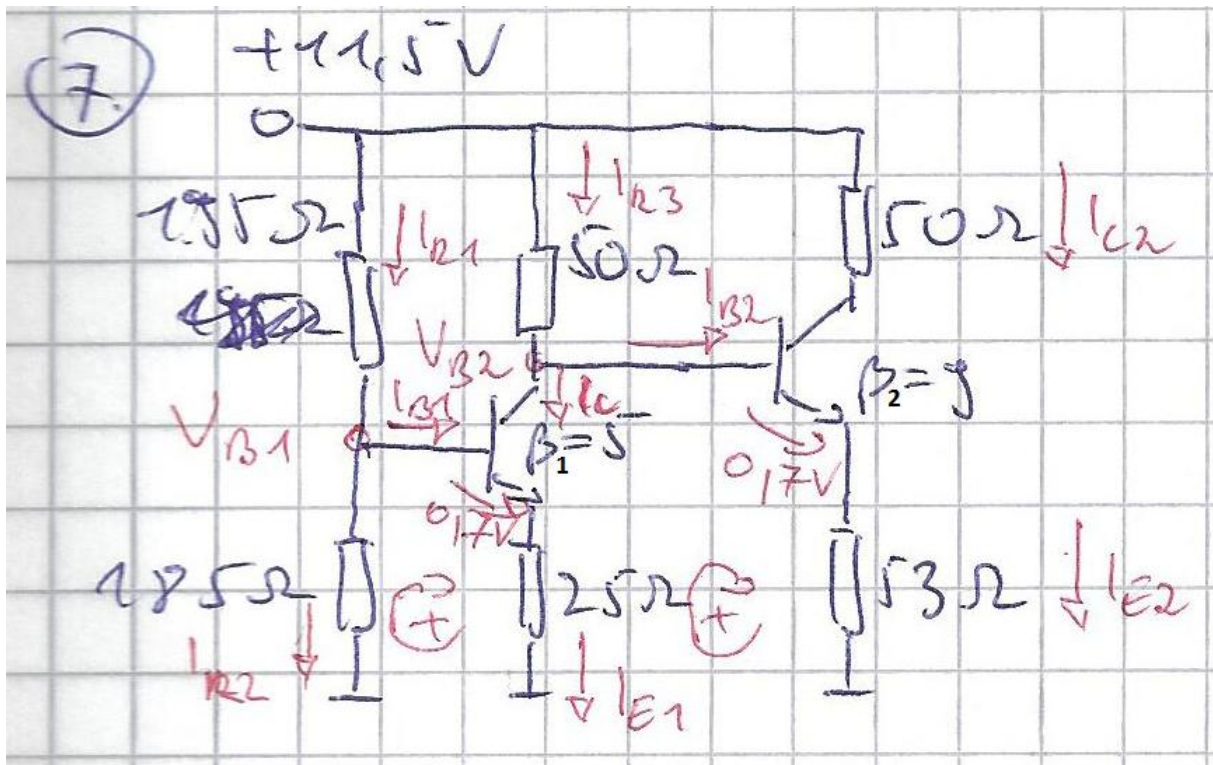 7.
+11,5V
195Ω
I_R1
I_R3
50Ω
50Ω
I_C2
V_B2
I_B2
V_B1
I_B1
I_C
β_1=5
β_2=9
0,7V
0,7V
185Ω
+
25Ω
+
53Ω
I_E2
I_R2
I_E1